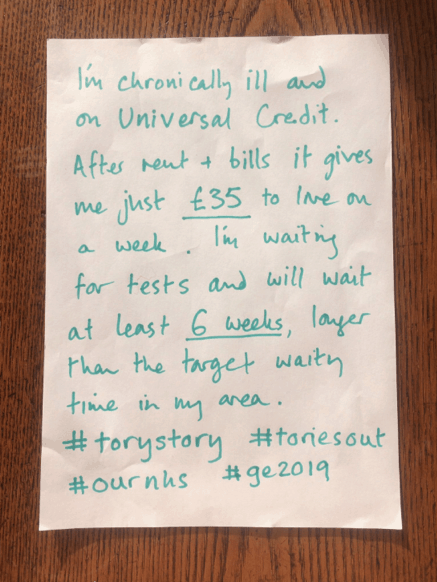 I'm chronically ill and
on Universal Credit.
After rent + bills it gives
me just £35 to live on
a week. I'm waiting
for tests and will wait
at least 6 weeks, longer
than the target waiting
time in my area.
#torystory #toriesout
#ournhs #ge2019